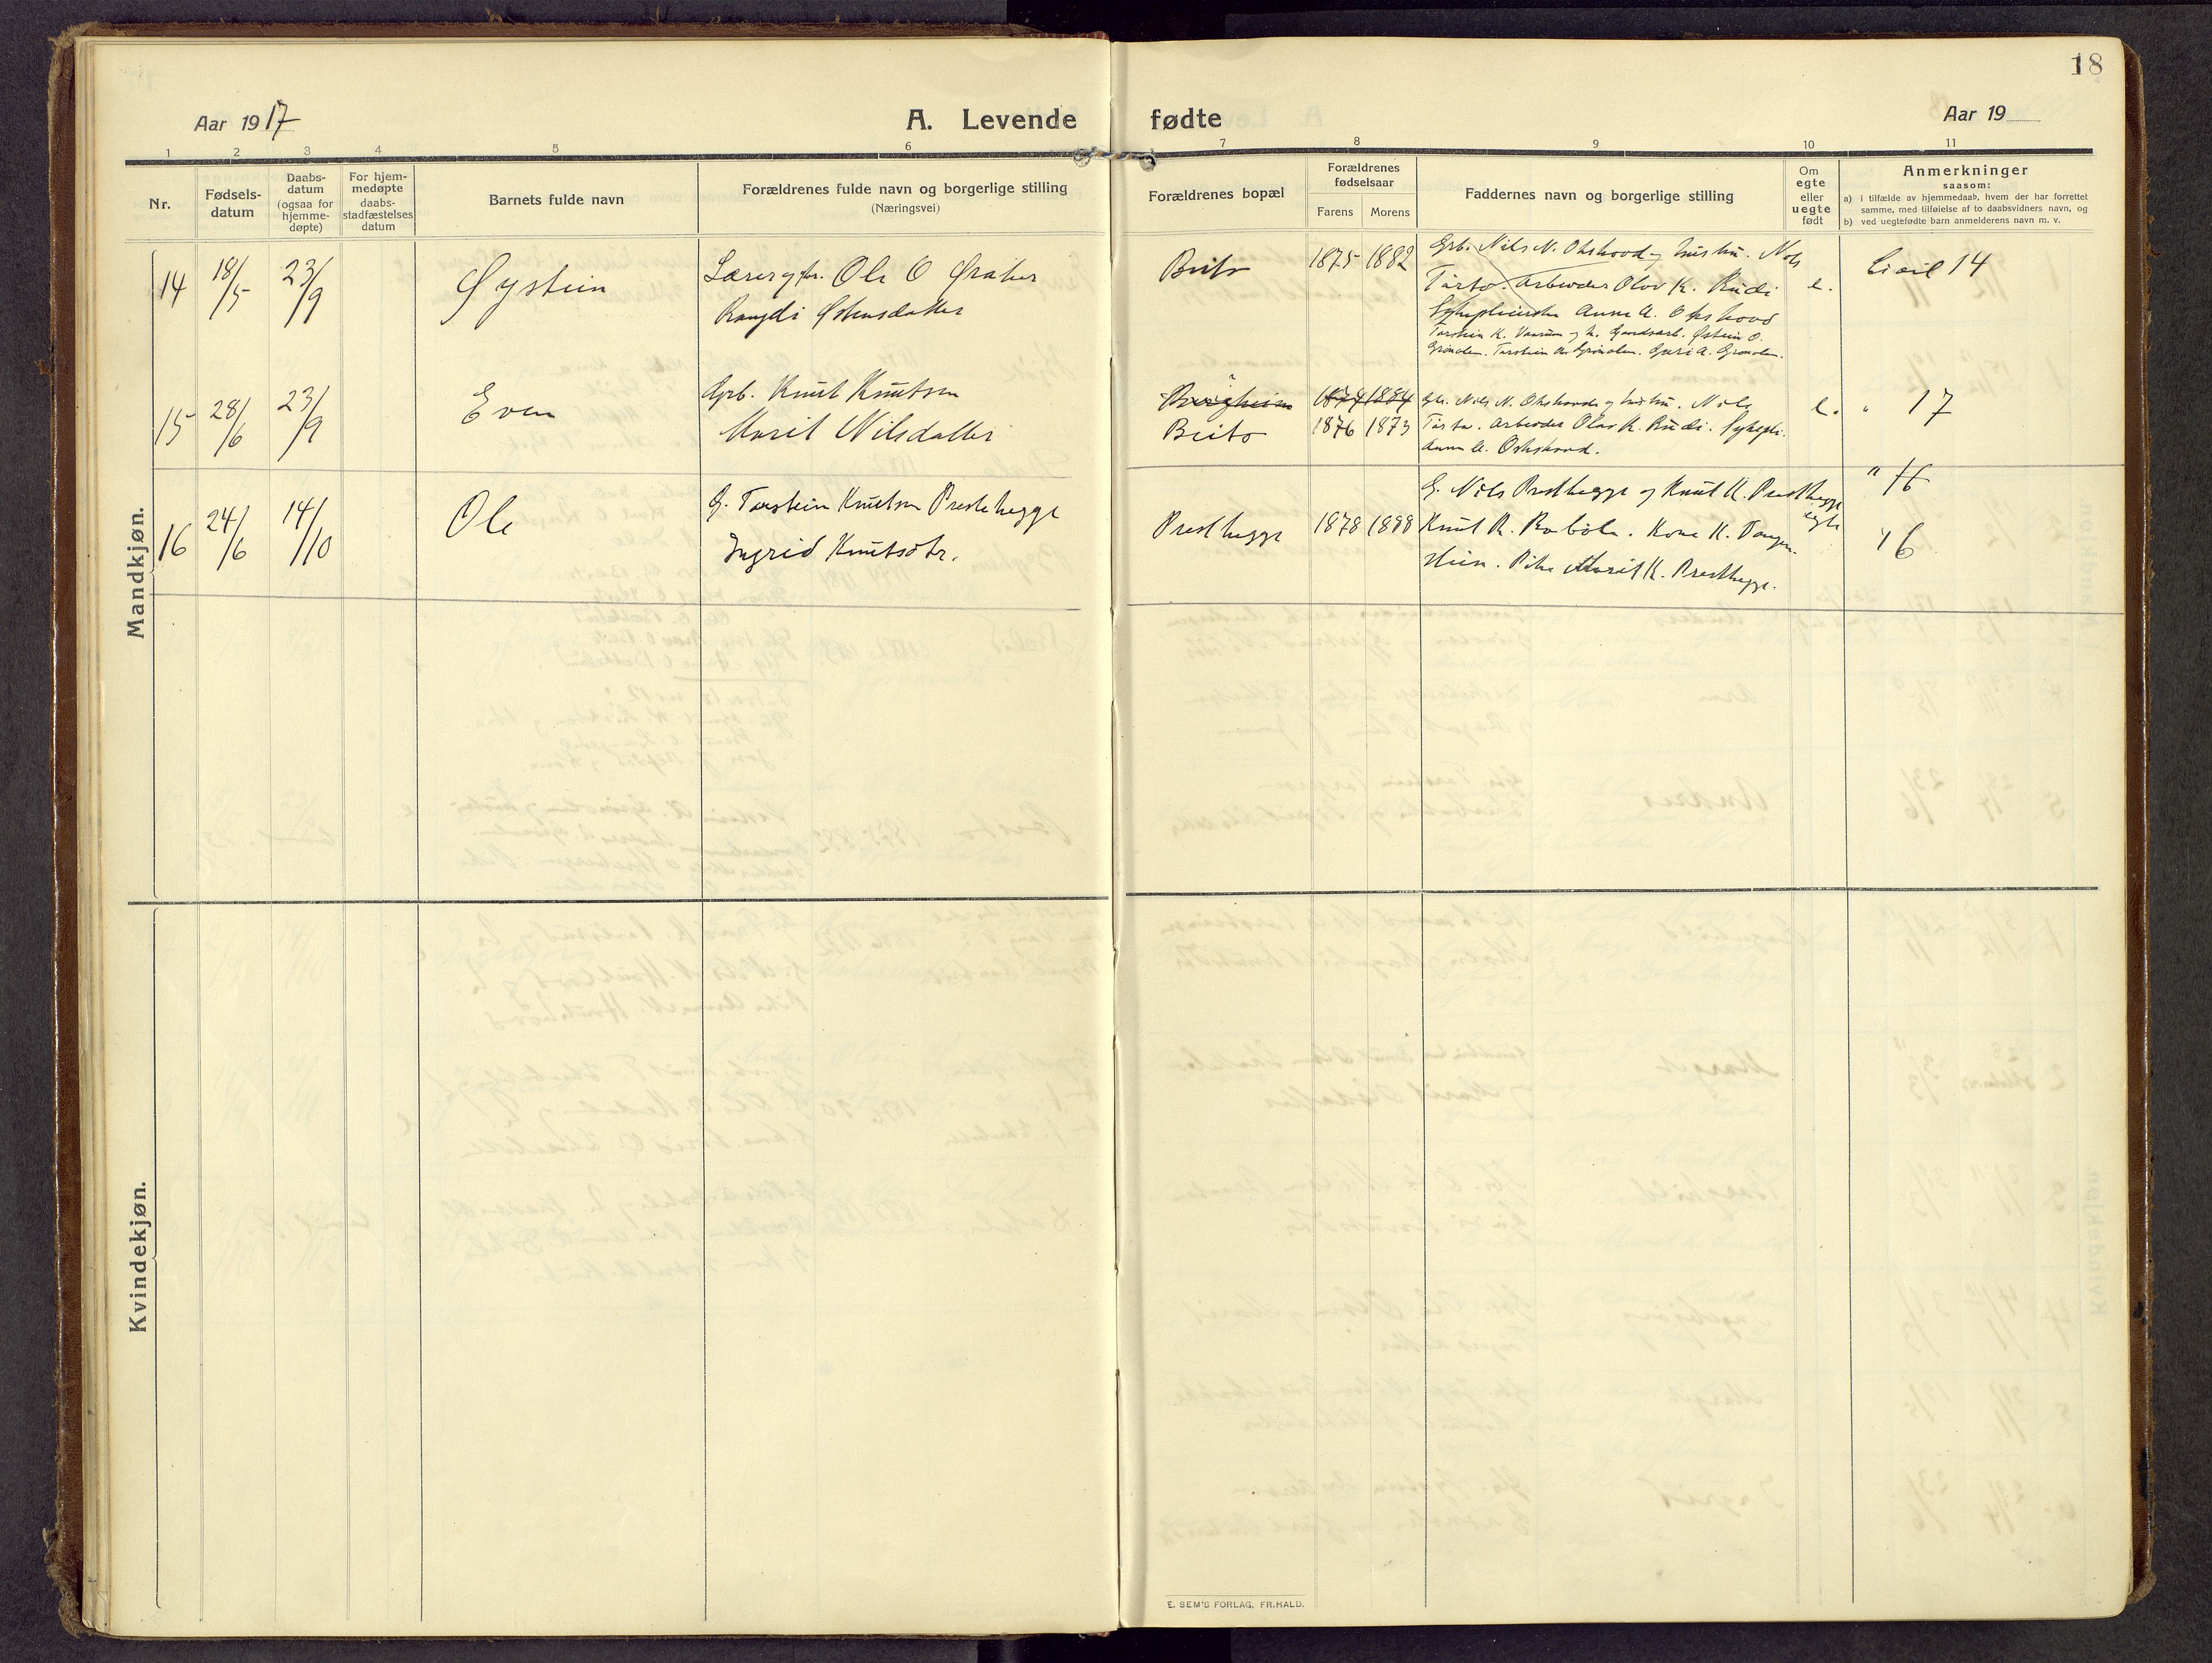 18
Aar 1917
A. Levende fødte
Aar 19
1 2 3 4 5 6 7 8 9 10 11
Nr.
Fødsels-
datum
Daabs-
datum
(ogsaa for
hjemme-
døpte)
For hjem-
medøpte
daabs-
stadfæstelses
datum
Barnets fulde navn
Forældrenes fulde navn og borgerlige stilling
(Næringsvei)
Forældrenes bopæl
Forældrenes
fødselsaar
Farens Morens
Faddernes navn og borgerlige stilling
Om
egte
eller
uegte
født
Anmerkninger
saasom:
a) i tilfælde av hjemmedaab, hvem der har forrettet
samme, med tilføielse af to daabsvidners navn, og
b) ved uegtefødte barn anmelderens navn m. v.
Mandkjøn.
14 18/5 23/9 Øystein
Lærer og br. Ole O
Rangdi Østensdatter
Beito 1875 1882
Grb. Nils N. Okshovd og hustru. Nils
Tarsto. Arbeider Olav K. Rudi
Sykepleierske Anne A. Okshovd
Torstein K. og h. Gaardsarb. Østein O.
Grønolen. Torstein A. Grønolen. Guri A. Grønolen.
e.
Civil 14
15 28/6 23/9 Even
Grb. Knut Knutsen
Marit Nilsdatter
Bergheim 1874 1884
Beito 1876 1873
Grb. Nils N. Okshovd og hustru. Nils
Tarsto. Arbeider Olav K. Rudi. Sykepl.
Anne A. Okshovd.
e.
" 17
16 24/6 14/10 Ole
G. Torstein Knutsen Prestehegge
Ingrid Knutsdtr.
Presthegge 1878 1888
G. Nils Presthegge og Knut K. Presthegge
Knut R. Robøle. Kone K.
Pike Marit K. Presthegge.
egte
" 16
" 6
Kvindekjøn.
E. SEM'S FORLAG, FR.HALD.